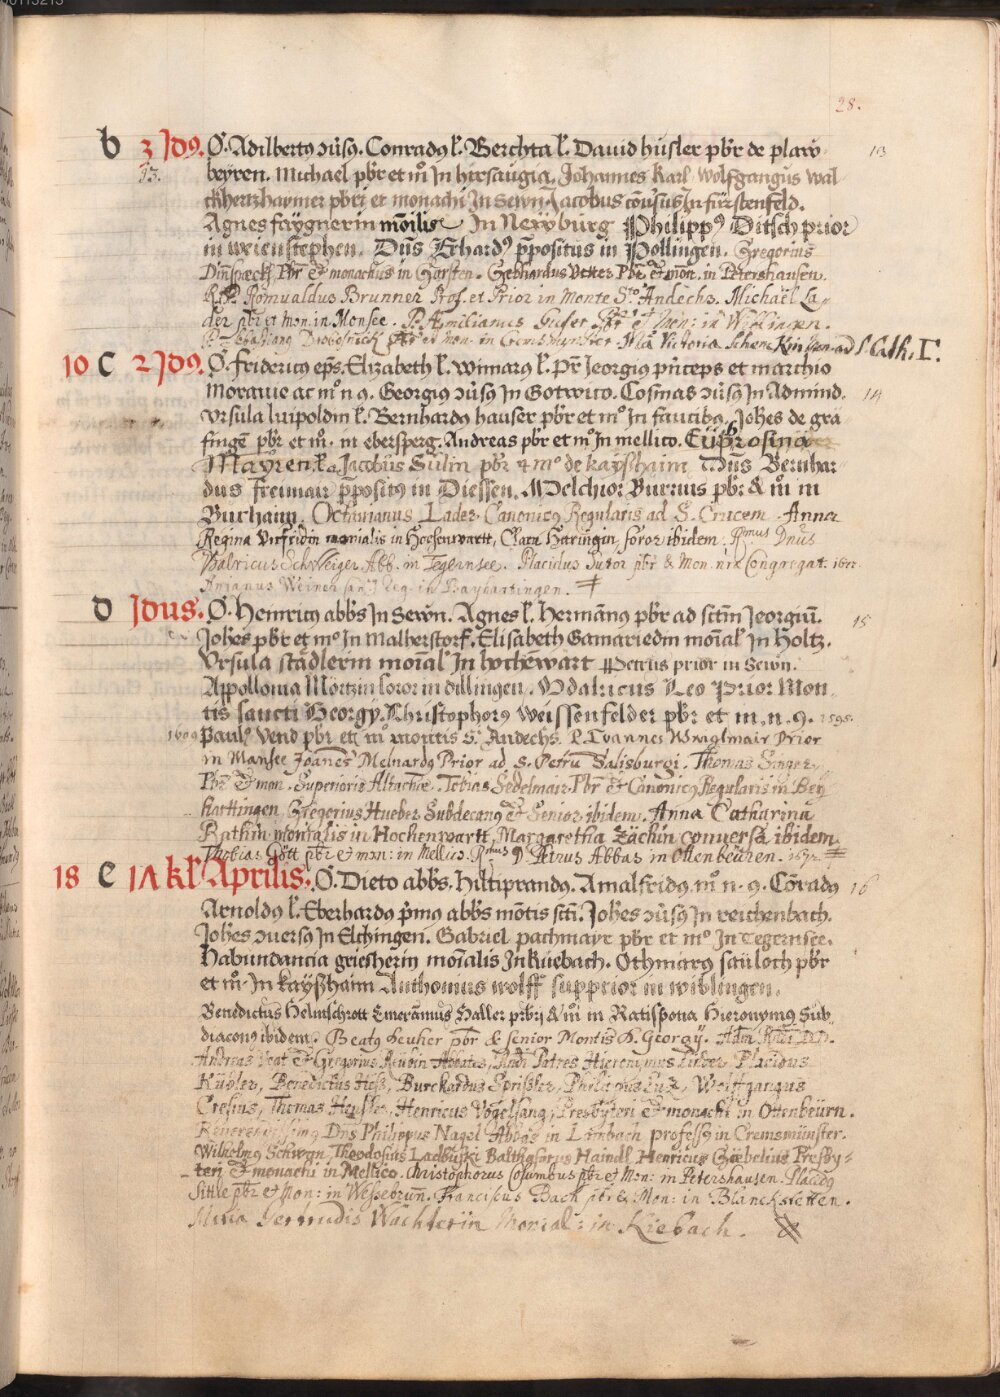 28.
b 3 Jdꝰ. O. Adilbertꝰ ɔūſꝰ. Conradꝰ l̕. Berchta l̕. David hüſler pbr̄ de plaw- 13
13. beyren. Michael pbr̄ et m̊ In hirſaugia. Johannes Karl wolfgangus wal-
ckhertzhaymer pbr̄i et monachi In Sewn. Jacobus cōuſus In fürſtenfeld.
Agnes fäygnerin mōilis In Neẅburg Philippꝰ Ditſch prior
in weienſtephen. Dūs Erhardꝰ p̄poſitus in Pollingen. Gregorius
Dūſpeckh Pbr̄ & monachus in Gorſten. Gebhardus Vetter Pbr̄ & mon. in Peterſhauſen.
R.P. Romualdus Brunner Prof. et Prior in Monte Sto Andechs. Michaël La-
der pbr̄ et Mon. in Monſee. P. Æmilianus Gufer Pbr̄ & Mon: in Wiblingen.
P. Sebaſtianꝰ pbr̄ et mon. in Cremſmunſter Mia Victoria Schenc Kirſſen ad S. Cath. Γ.
10 C 2 Jdꝰ. O. Fridericꝰ ep̄s. Elizabeth l̕. Wimarꝰ l̕. Pr̄ Jeorgiꝰ pn̄ceps et marchio
Morauie ac m̊ n ꝯ. Georgiꝰ ɔūſꝰ In Gotwico. Coſmas ɔūſꝰ In Admind. 14
Vrſula luipoldin l̕. Bernhardꝰ hauſer pbr̄ et m̊ In faucibꝰ. Joh̄es de gra-
fingē pbr̄ et m̊. in eberſperg. Andreas pbr̄ et m̊ In mellico. Eüphroſina
Mayren l̕a. Jacobus Sülin pbr̄ & mo de kayſhaim. Dūs Bernhar-
dus Freiman p̄poſitꝰ in Dieſſen. Melchior Burrus pbr̄ & m̊ in
Burhaun. Octavianus Lader Canonicꝰ Regularis ad S. Crucem. Anna
Regina Verfridin monialis in Hochenwartt, Clara Häringin, ſoror ibidem. Rmus Dnus
Vdalricus Schweiger Abb. in Tegernſee. Placidus Sutor pbr̄ & Mon. nrꝭ Congregat.
in Bayhartingen.
D Jdus. O. Heinricꝰ abb̄s In Sewn. Agnes l̕. Hermānꝰ pbr̄ ad ſct̄m Jeorgiū. 15
Joh̄es pbr̄ et mo In Malherſtorf. Eliſabeth Gamariedin moīal̕ In Holtz.
Vrſula ſtädlerin moīal̕ In hochēwart Petrus prior in Sewn.
Appollonia Mörtzin ſoror in dillingen. Vdalricus Leo Prior Mon-
tis ſancti Georgy. Chriſtophorꝰ Weiſſenfelder pbr̄ et m. n. ꝯ. 1595.
1609 Paulꝰ Vend pbr̄ et m̊ montis S. Andechs. P. Ioannes Wraglmair Prior
in Manſee Joanes Meinardꝰ Prior ad S. Petrū Salisburgi. Thomas Singer
Pbr̄ & mon. Superioris Altachæ. Tobias Sedelmair Pbr̄ & Canonicꝰ Regularis in Bey-
harttingen, Gregorius Hueber Subdecanꝰ & Senior ibidem. Anna Catharina
Rathin monialis in Hochenwartt, Margaretha Zächin converſa ibidem.
Thobias Gött pbr̄ & mon: in Mellico. Rmus D. Petrus Abbas in Ottenbeüren. 1672.
18 E 17 kl̕ Aprilis. O. Dieto abb̄s. Hiltiprandꝰ. Amalfridꝰ. m̊ n. ꝯ. Cōradꝰ 16
Arnoldꝰ l̕. Eberhardꝰ p̄mꝰ abb̄s mōtis ſcti. Joh̄es ɔūſꝰ In reichenbach.
Joh̄es ɔuerſꝰ In Elchingen. Gabriel pachmayr pbr̄ et mo In Tegernſee.
Habundancia grieſherin moīalis In küebach. Othmarꝰ ſaüloch pbr̄
et m̊. In kayſzhaim Anthonius wolff ſupprior in wiblingen.
Benedictus Helmſchrott Emeramus Haller pr̄bri & m̊i in Ratiſpona Hieronymꝰ Sub-
diaconꝰ ibidem. Beatꝰ Seuher pbr̄ & ſenior Montis D. Georgÿ. Adm. Rdi. DD.
Andreas Veat & Gregorius Reübin Abbates, Rndi Patres Hieronymus Linder Placidus
Kübler, Benedictus Heſs, Burckardus Spriſſler, Philippus Luz, Wolffgangus
Creſius, Thomas Heuſler, Henricus Vogelſang, Preſbyteri & monachi in Ottenbeürn.
Reverendiſſimꝰ Dns Philippus Nagel Abbas in Lambach profeſſꝰ in Cremsmünſter.
Wilhelmꝰ Schwan, Theodoſius Ladbuſki Balthaſarus Haindl, Henricus Göebelius Preſby-
teri & monachi in Mellico. Chriſtophorus Columbus pbr̄ & Mon: in Peterſhauſen. Placidꝰ
Sittle pbr̄ & Mon: in Weſſebrun. Franciſcus Bach pbr̄ & Mon: in Blanckſtetten.
Maria Gertrudis Wachterin Monial: in Kiebach.